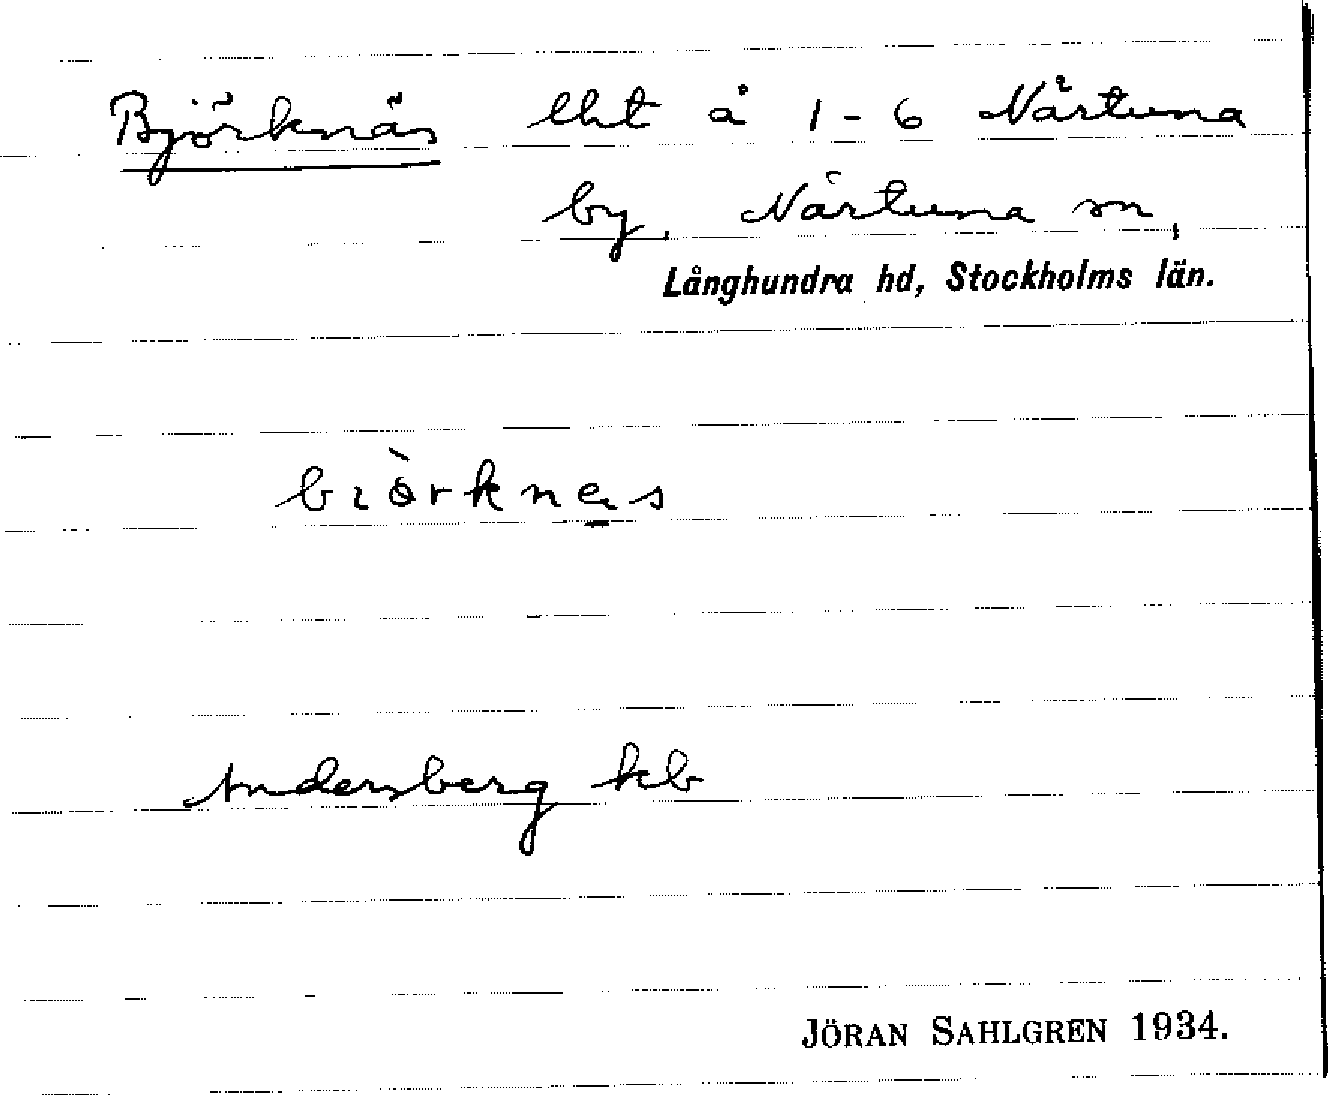 Björknäs lht å 1-6 Närtuna
by, Närtuna sn,
Långhundra hd, Stockholms län.
biòrknes
Andersberg kb
JÖRAN SAHLGREN 1934.